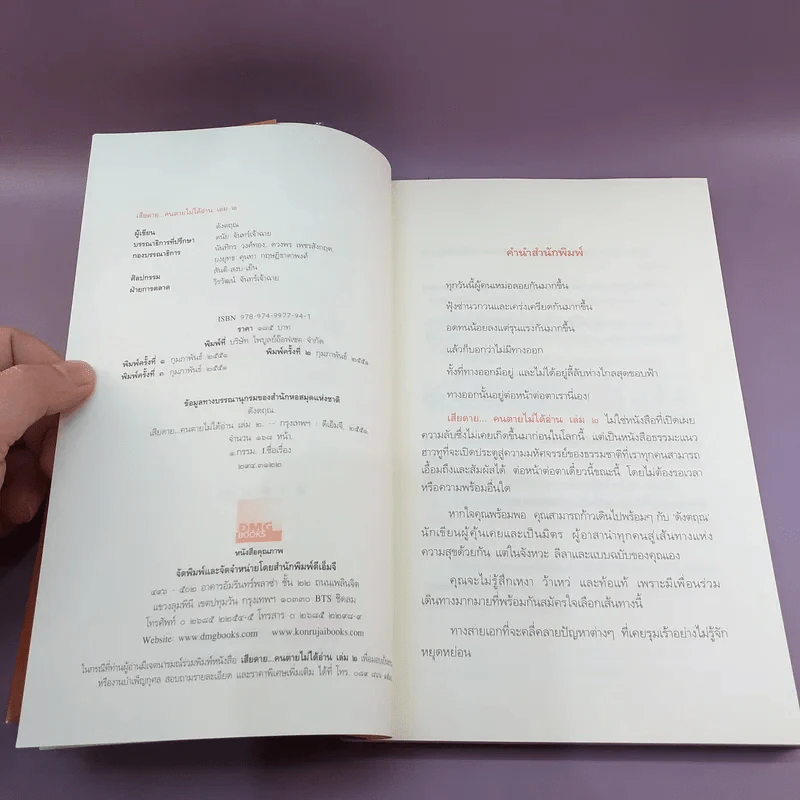 เสียดาย...คนตายไม่ได้อ่าน เล่ม ๒
ผู้เขียน ดังตฤณ
บรรณาธิการที่ปรึกษา ดนัย จันทร์เจ้าฉาย
กองบรรณาธิการ นันทิกร วงศ์ทอง, ดวงพร เพชรสังกฤต,
ยงยุทธ
ศิลปกรรม สันติ-สงบ-เย็น
ฝ่ายการตลาด วิรวัฒน์ จันทร์เจ้าฉาย
ISBN 978-974-9977-94-1
ราคา ๑๘๕ บาท
พิมพ์ที่ บริษัท ไพบูลย์อ๊อฟเซต จำกัด
พิมพ์ครั้งที่ ๑ กุมภาพันธ์ ๒๕๕๑ พิมพ์ครั้งที่ ๒ กุมภาพันธ์ ๒๕๕๑
พิมพ์ครั้งที่ ๓ กุมภาพันธ์ ๒๕๕๑
ข้อมูลทางบรรณานุกรมของสำนักหอสมุดแห่งชาติ
ดังตฤณ
เสียดาย...คนตายไม่ได้อ่าน เล่ม ๒. -- กรุงเทพฯ : ดีเอ็มจี, ๒๕๕๑
จำนวน ๑๖๘ หน้า
๑.กรรม. I.ชื่อเรื่อง
๒๙๔.๓๑๒๒
DMG
BOOKS
หนังสือคุณภาพ
จัดพิมพ์และจัดจำหน่ายโดยสำนักพิมพ์ดีเอ็มจี
๔๙๖ - ๕๐๒ อาคารอัมรินทร์พลาซ่า ชั้น ๒๒ ถนนเพลินจิต
แขวงลุมพินี เขตปทุมวัน กรุงเทพฯ ๑๐๓๓๐ BTS ชิดลม
โทรศัพท์ ๐ ๒๖๘๕ ๒๒๕๔-๕ โทรสาร ๐ ๒๖๘๕ ๒๒๙๘-๙
Website: www.dmgbooks.com www.konrujaibooks.com
ในกรณีที่ท่านผู้อ่านมีเจตนารมณ์ร่วมพิมพ์หนังสือ เสียดาย...คนตายไม่ได้อ่าน เล่ม ๒
หรืองานบำเพ็ญกุศล สอบถามรายละเอียด และราคาพิเศษเพิ่มเติม ได้ที่ โทร.
คำนำสำนักพิมพ์
ทุกวันนี้ผู้คนเหม่อลอยกันมากขึ้น
ฟุ้งซ่านวกวนและเคร่งเครียดกันมากขึ้น
อดทนน้อยลงแต่รุนแรงกันมากขึ้น
แล้วก็บอกว่าไม่มีทางออก
ทั้งที่ทางออกมีอยู่ และไม่ได้อยู่ลี้ลับห่างไกลสุดขอบฟ้า
ทางออกนั้นอยู่ต่อหน้าต่อตาเรานี่เอง!
เสียดาย... คนตายไม่ได้อ่าน เล่ม ๒ ไม่ใช่หนังสือที่เปิดเผย
ความลับซึ่งไม่เคยเกิดขึ้นมาก่อนในโลกนี้ แต่เป็นหนังสือธรรมะแนว
ฮาวทูที่จะเปิดประตูสู่ความมหัศจรรย์ของธรรมชาติที่เราทุกคนสามารถ
เอื้อมถึงและสัมผัสได้ ต่อหน้าต่อตาเดี๋ยวนี้ขณะนี้ โดยไม่ต้องรอเวลา
หรือความพร้อมอื่นใด
หากใจคุณพร้อมพอ คุณสามารถก้าวเดินไปพร้อมๆ กับ 'ดังตฤณ'
นักเขียนผู้คุ้นเคยและเป็นมิตร ผู้อาสานำทุกคนสู่เส้นทางแห่ง
ความสุขด้วยกัน แต่ในจังหวะ ลีลาและแบบฉบับของคุณเอง
คุณจะไม่รู้สึกเหงา ว้าเหว่ และท้อแท้ เพราะมีเพื่อนร่วม
เดินทางมากมายที่พร้อมกันสมัครใจเลือกเส้นทางนี้
ทางสายเอกที่จะคลี่คลายปัญหาต่างๆ ที่เคยรุมเร้าอย่างไม่รู้จัก
หยุดหย่อน